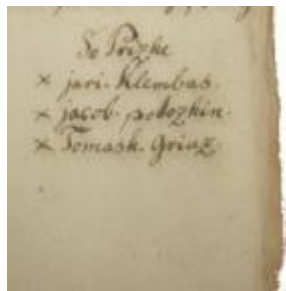 So Prizke
× juri. Klembas.
× jacob. polozkin.
× Tomask. Griaz.